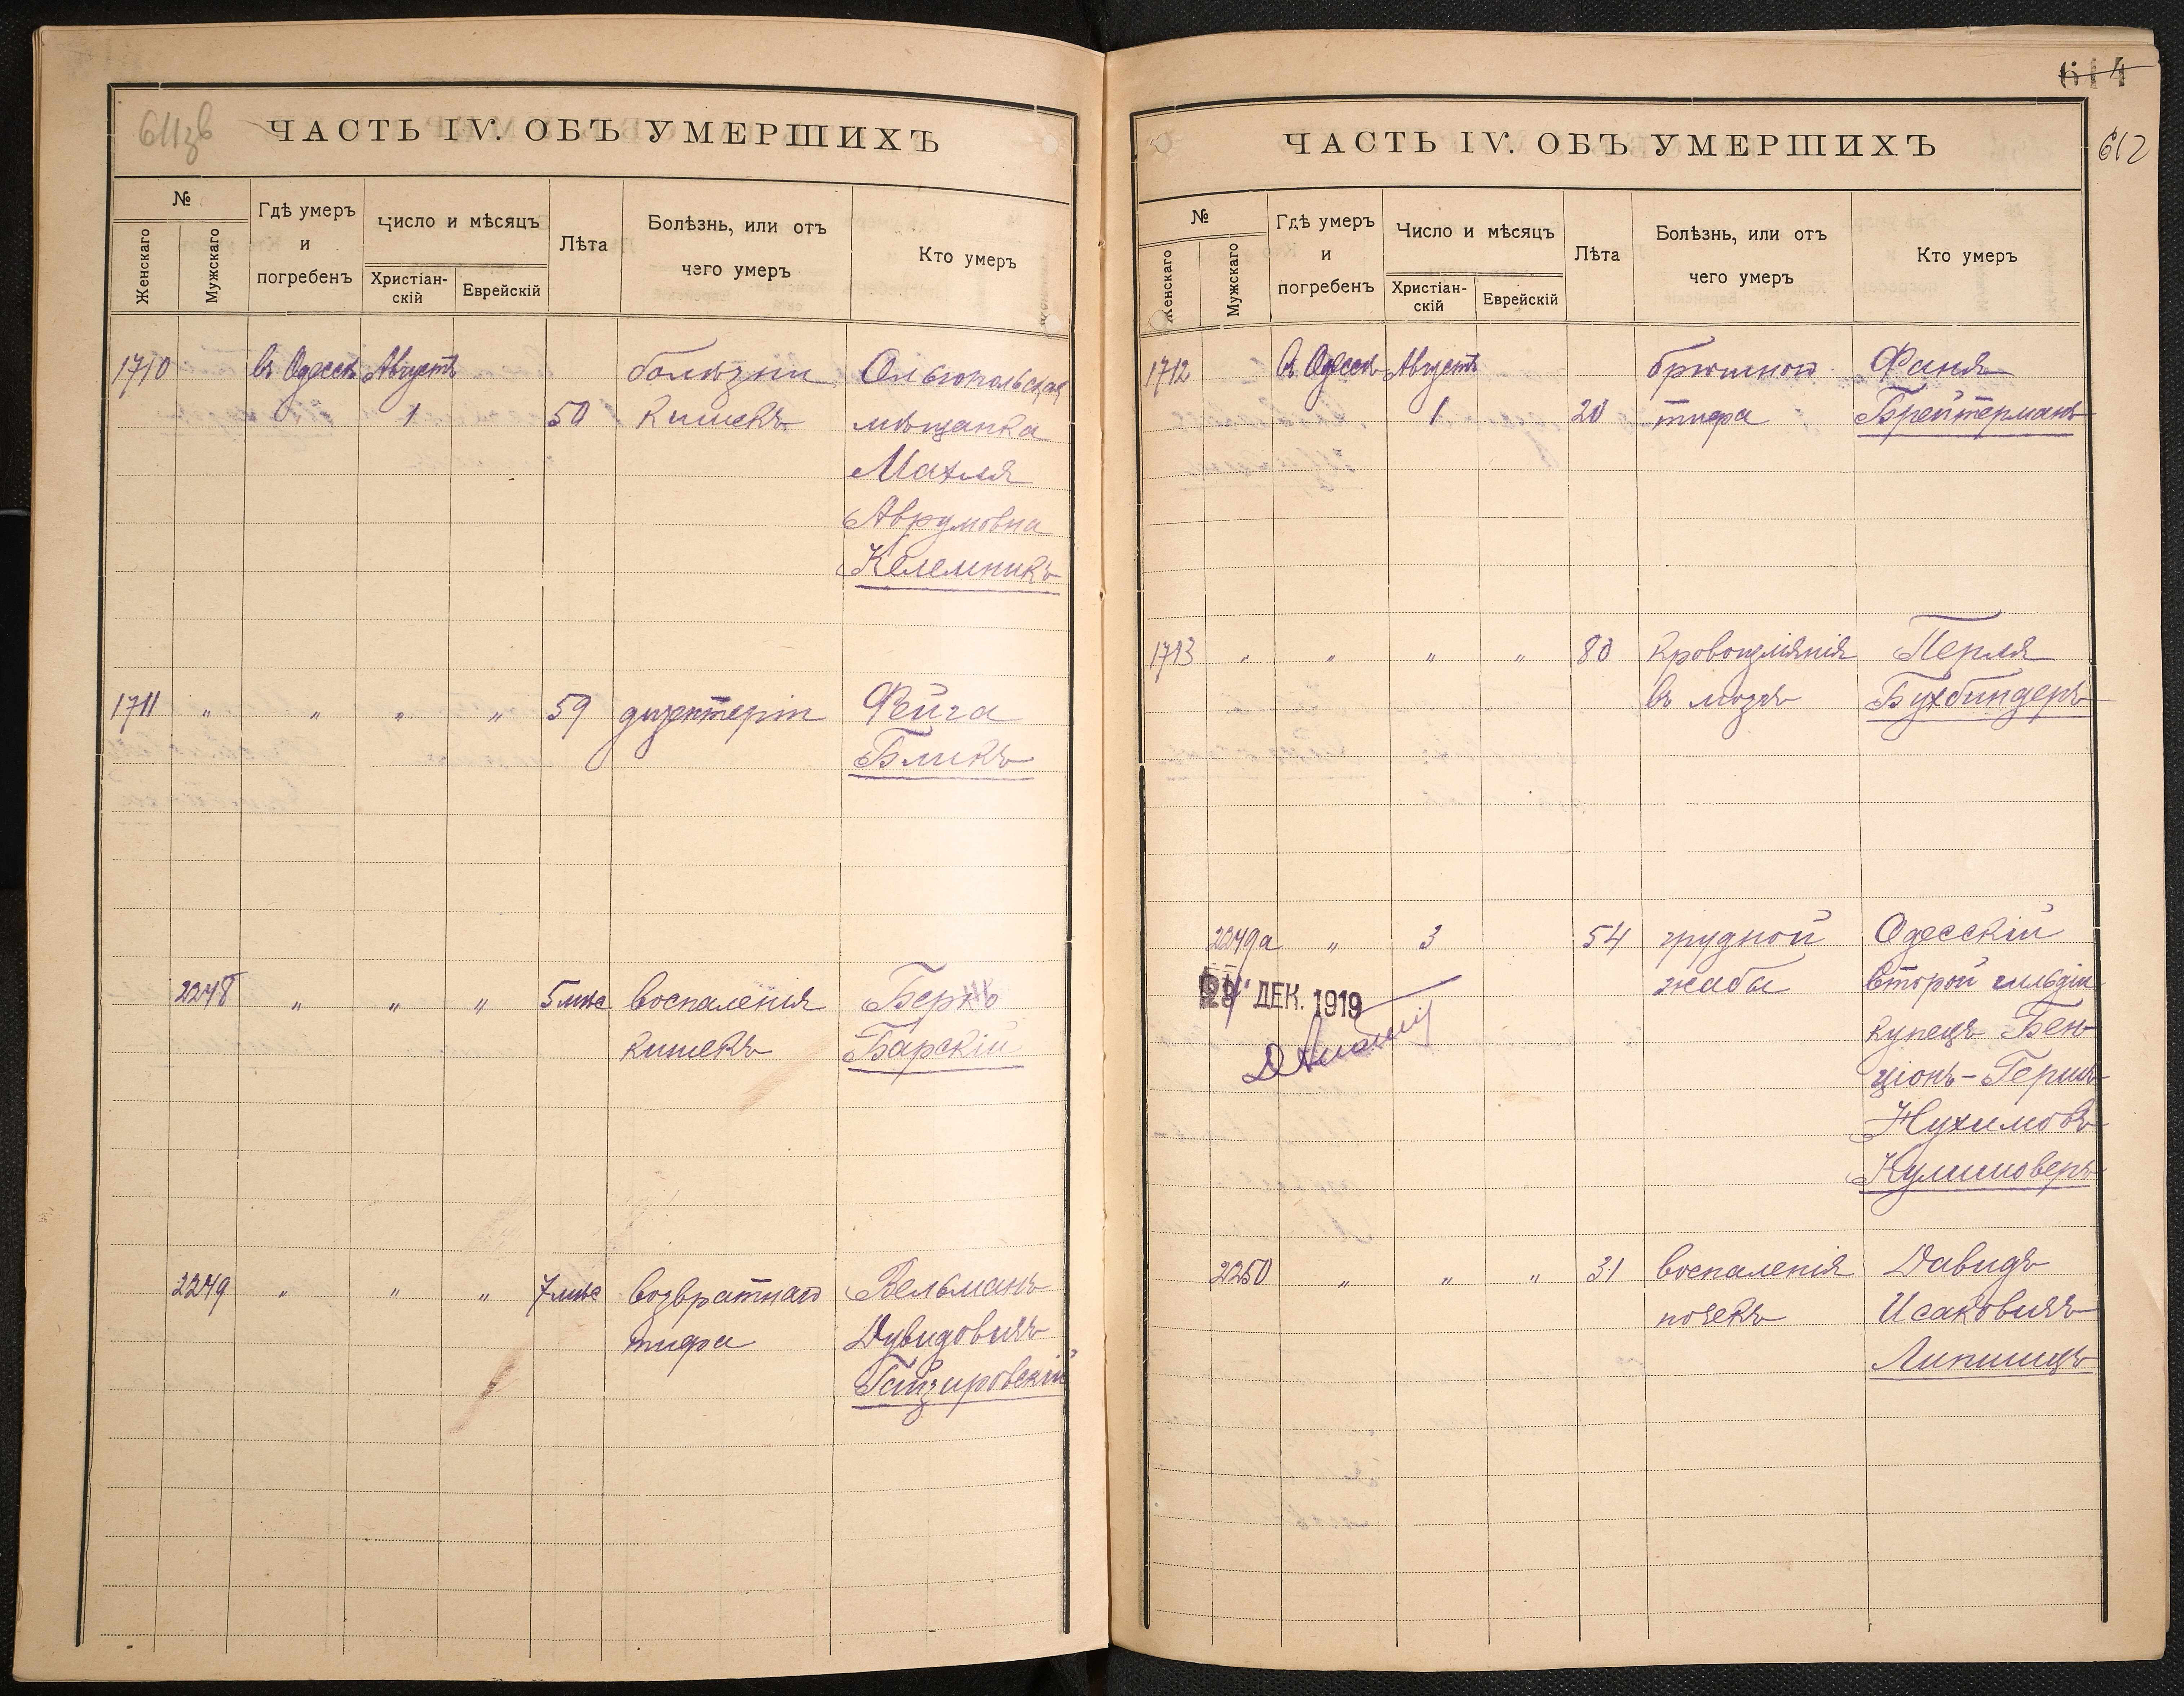 611зв
ЧАСТЬ IV. ОБЪ УМЕРШИХЪ
№
Женскаго
Мужскаго
Гдѣ умеръ
и
погребенъ
Число и мѣсяцъ
Христіан-
скій
Еврейскій
Лѣта
Болѣзнь, или отъ
чего умеръ
Кто умеръ
1710 въ Одессѣ Августъ болѣзни Ольгопольская
1 50 кишекъ мѣщанка
Махля
Аврумовна
Келемникъ
1711 " " " " 59 дизентеріи Фейга
Бликъ
2248 " " " 5 мѣс воспаленія Берко
кишекъ Барскій
2249 " " " 7 мѣс возвратнаго Вельманъ
тифа Дувидовичъ
Гайзировскій
614
612
ЧАСТЬ IV. ОБЪ УМЕРШИХЪ
№
Женскаго
Мужскаго
Гдѣ умеръ
и
погребенъ
Число и мѣсяцъ
Христіан-
скій
Еврейскій
Лѣта
Болѣзнь, или отъ
чего умеръ
Кто умеръ
1712 въ Одессѣ Августъ брюшного Фаня
1 20 тифа Брейтерманъ
1713 " " " " 80 кровоизліянія Перля
въ мозгъ Бухбиндеръ
2249а " 3 54 грудной Одесскій
ДЕК. 1919 жабы второй гильдіи
купецъ Бен-
ціонъ-Гершъ
Нухимовъ
Кулишоверъ
2250 " " " 31 воспаленія Давидъ
почекъ Исаковичъ
Липшицъ